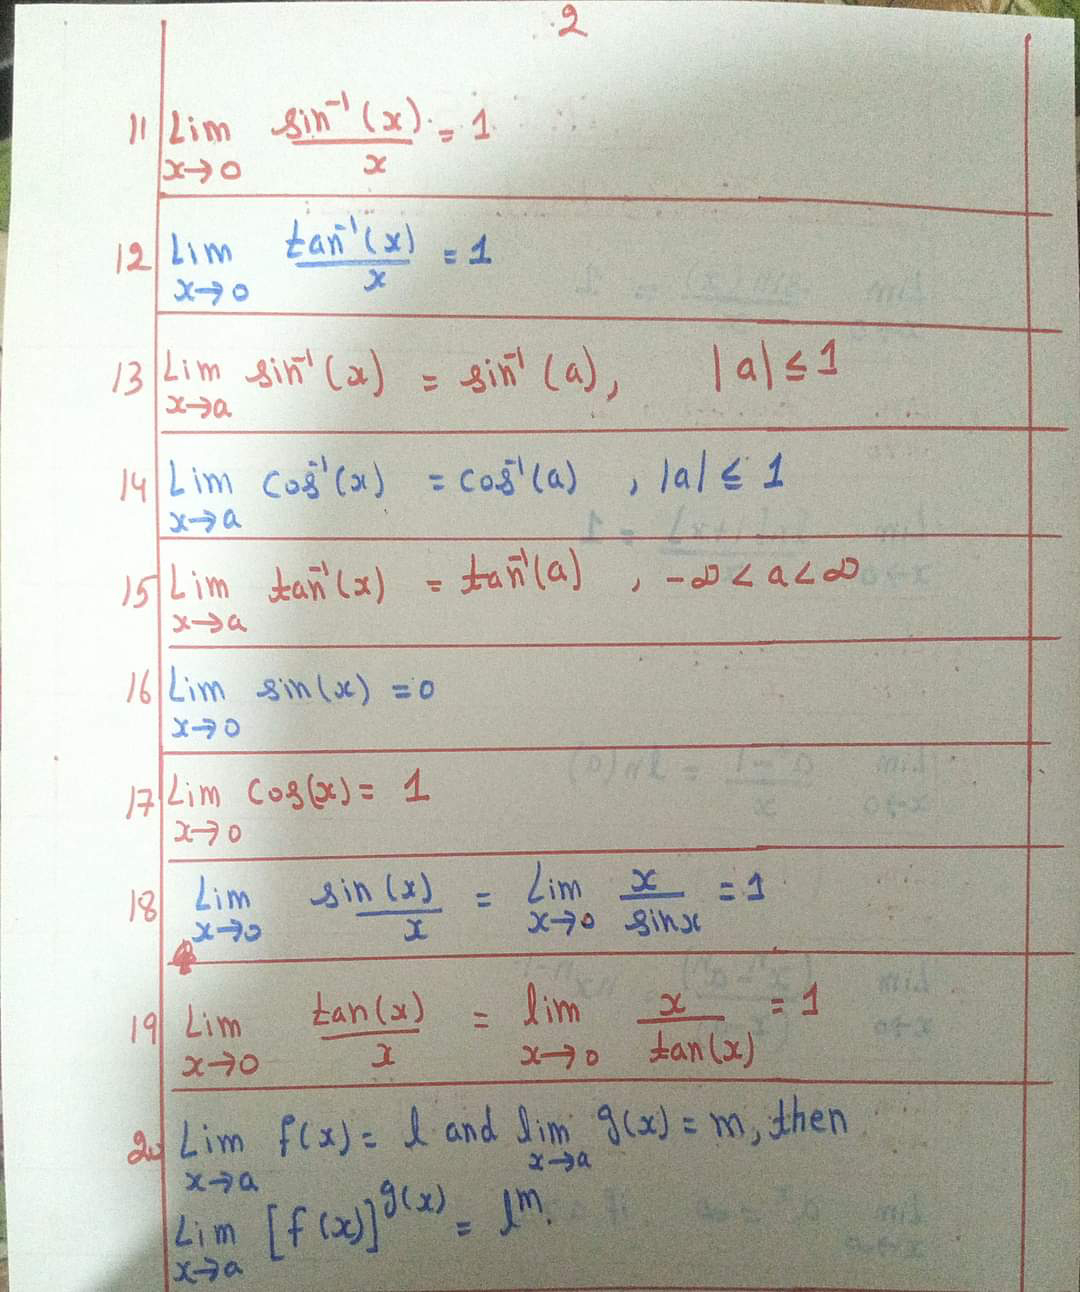 2
11 Lim x→0 sin⁻¹(x)/x = 1
12 Lim x→0 tan⁻¹(x)/x = 1
13 Lim x→a sin⁻¹(x) = sin⁻¹(a), |a| ≤ 1
14 Lim x→a cos⁻¹(x) = cos⁻¹(a) , |a| ≤ 1
15 Lim x→a tan⁻¹(x) = tan⁻¹(a) , -∞ < a < ∞
16 Lim x→0 sin(x) = 0
17 Lim x→0 cos(x) = 1
18 Lim x→0 sin(x)/x = Lim x→0 x/sinx = 1
19 Lim x→0 tan(x)/x = lim x→0 x/tan(x) = 1
20 Lim x→a f(x) = l and lim x→a g(x) = m, then
Lim x→a [f(x)]^g(x) = l^m.